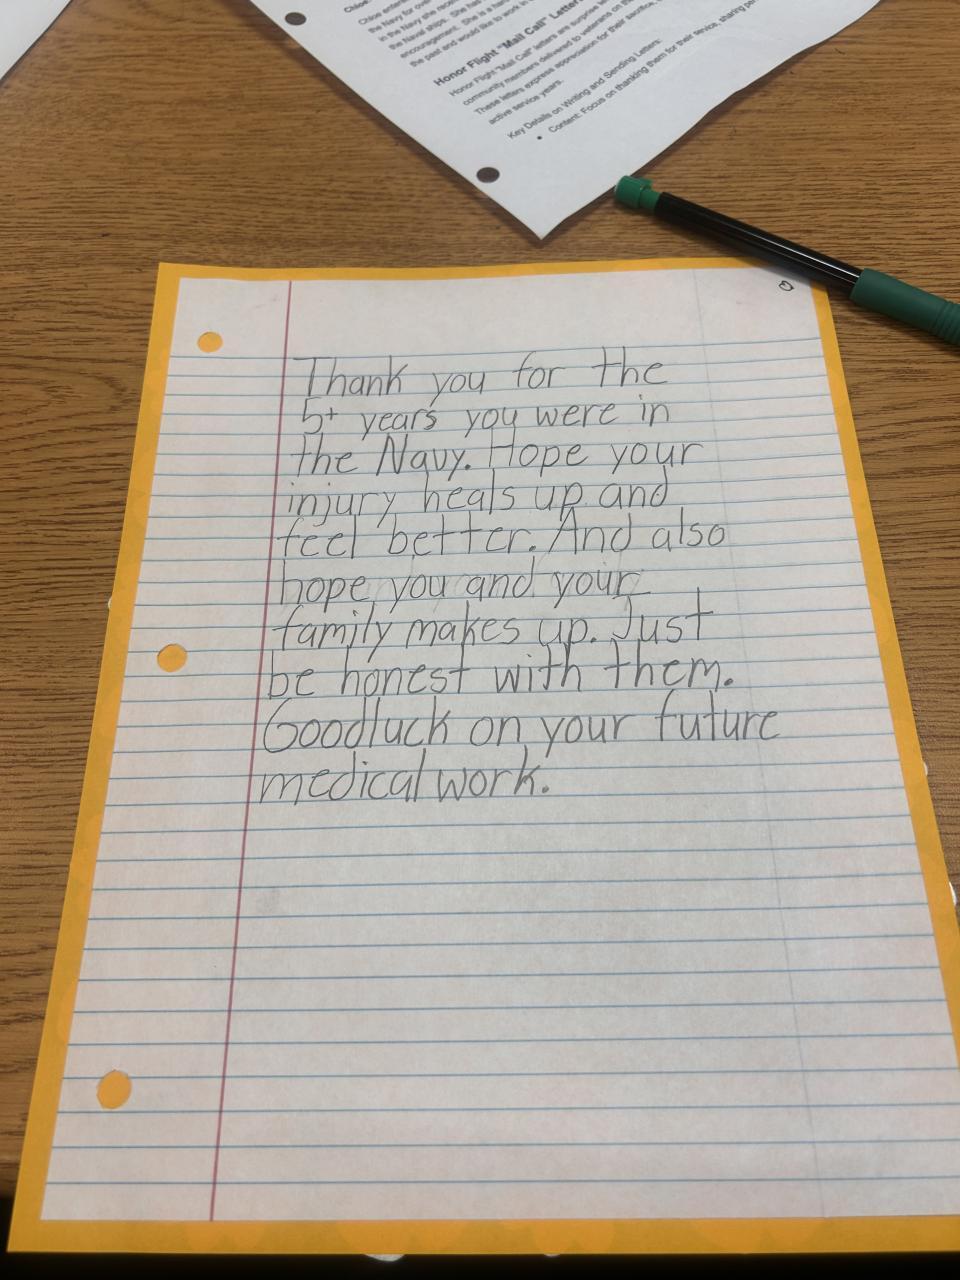 Chloe
Chloe entere
the Navy for over
in the Navy she rece
the Naval ships. She has
encouragement. She is a hard
the past and would like to work in
Honor Flight "Mail Call" Letter
Honor Flight "Mail Call" letters are surprise
community members delivered to veterans on the
These letters express appreciation for their sacrifice,
active service years.
Key Details on Writing and Sending Letters:
• Content: Focus on thanking them for their service, sharing per
Thank you for the
5+ years you were in
the Navy. Hope your
injury heals up and
feel better. And also
hope you and your
family makes up. Just
be honest with them.
Goodluck on your future
medical work.